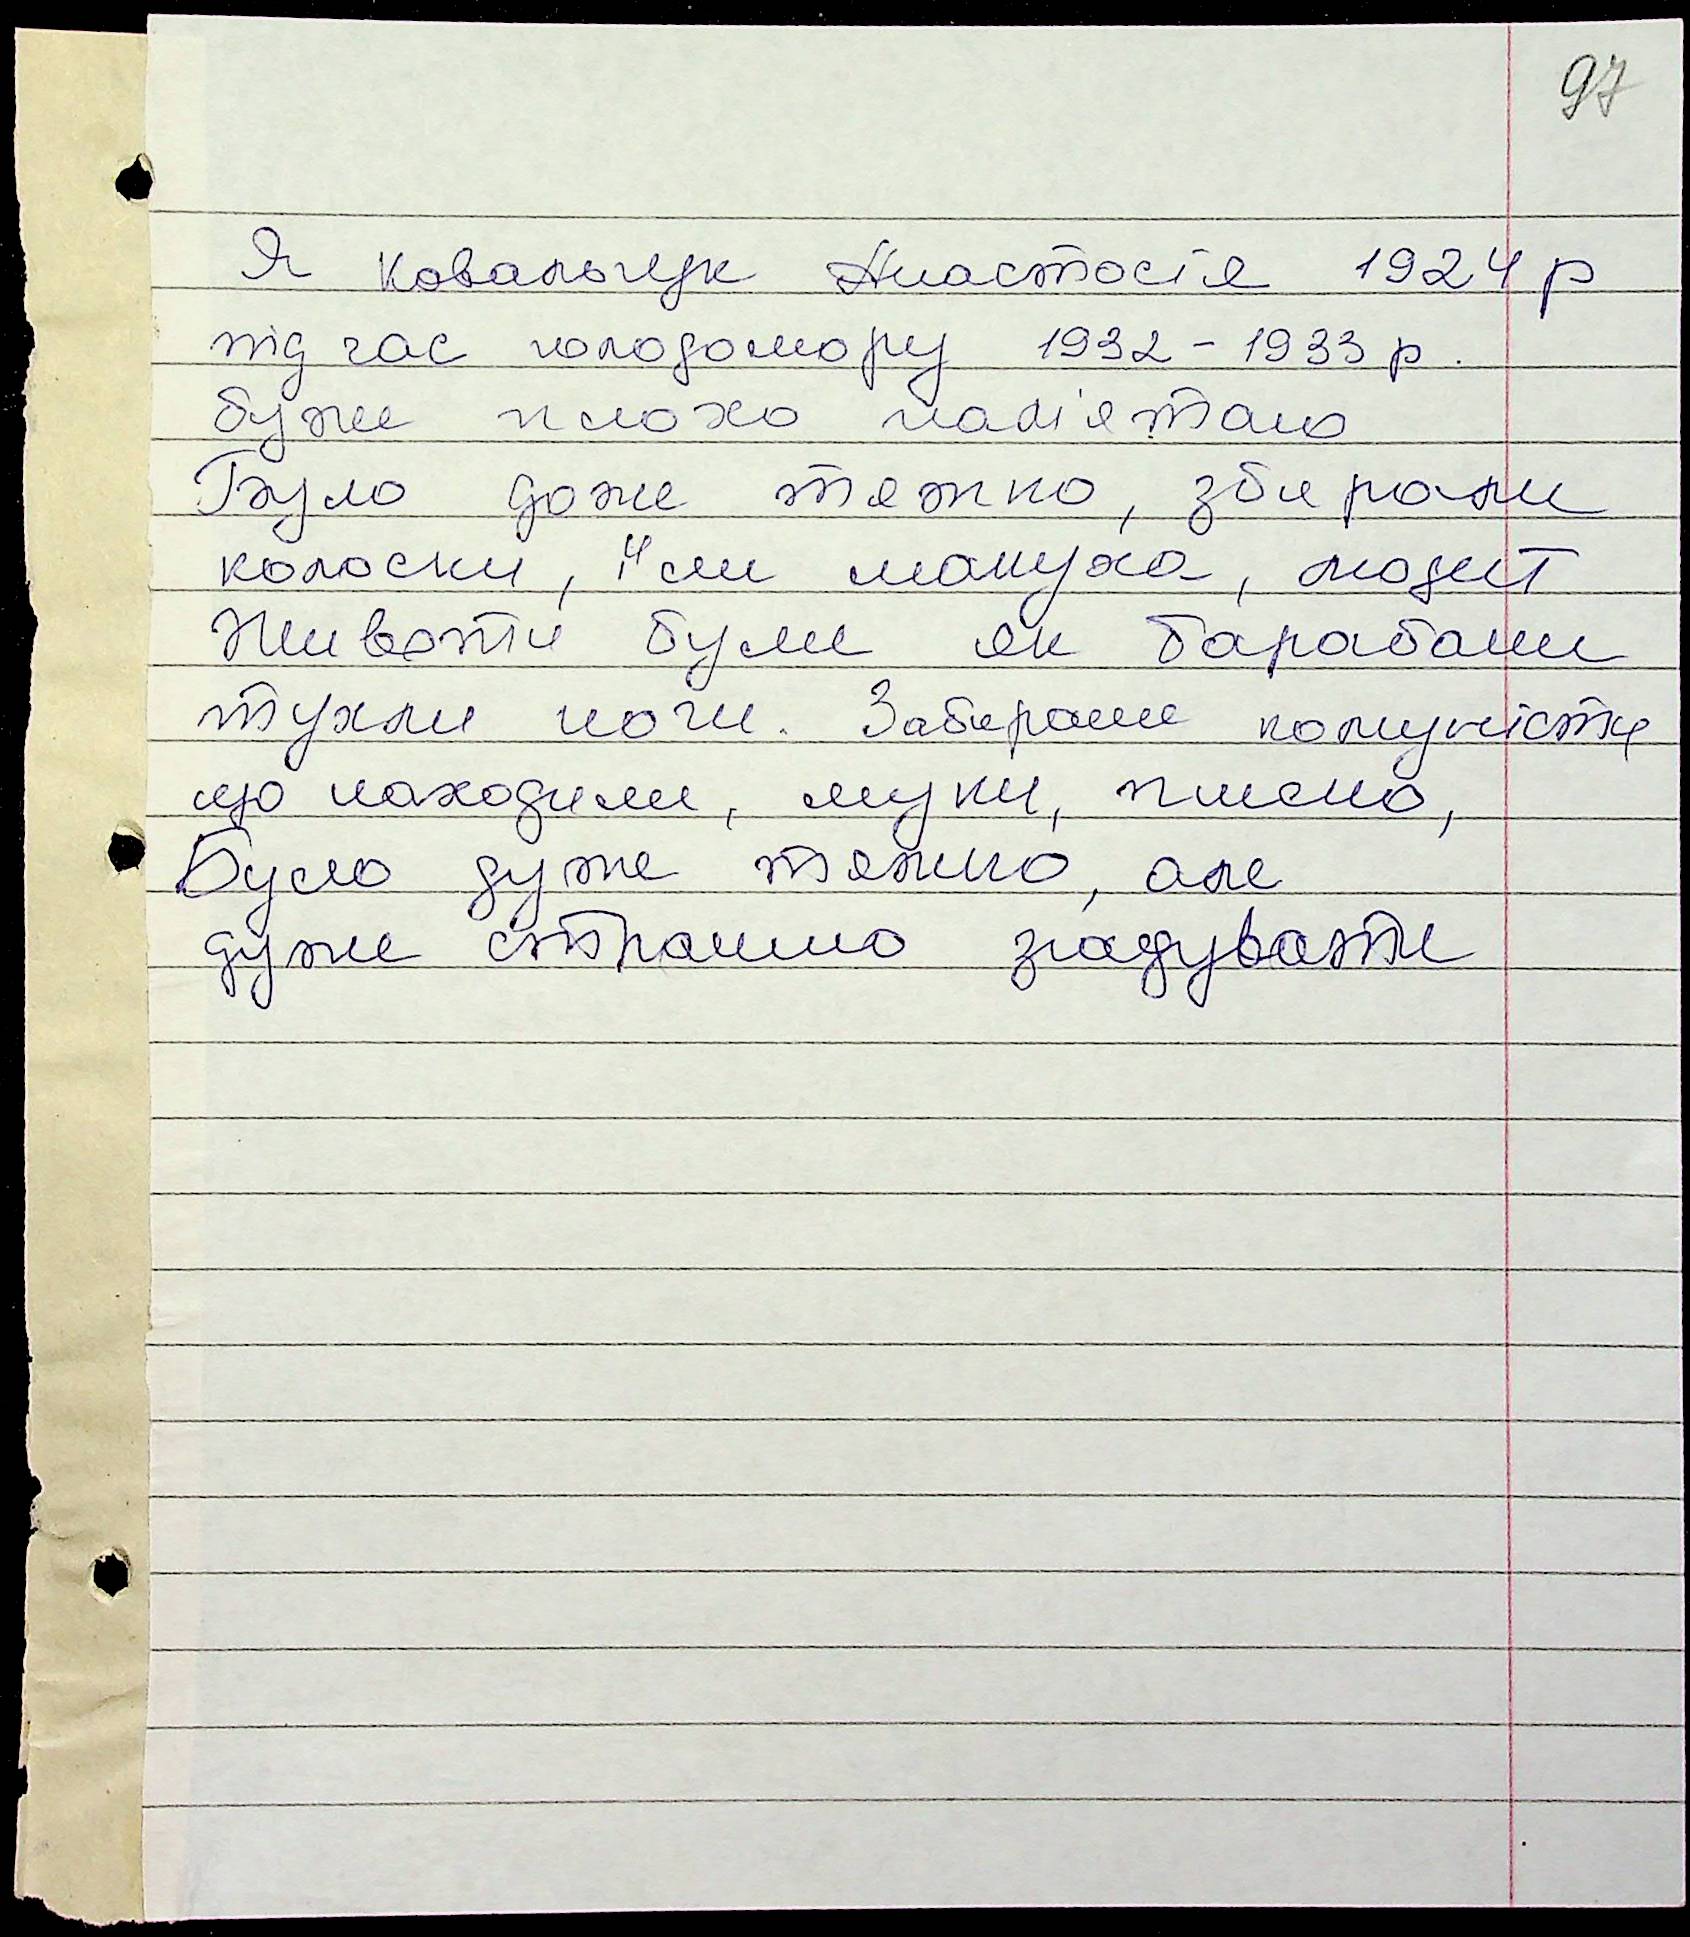 97
Я Ковальчук Анастосія 1924 р
під час голодомору 1932-1933 р.
дуже плохо пам'ятаю
Було доже тяжко, збирали
колоски, їли макуха,
Животи були як барабани
тухли ноги. Забирали комуністи
що находили, муки, пшоно,
Було дуже тяжко, але
дуже страшно згадувати